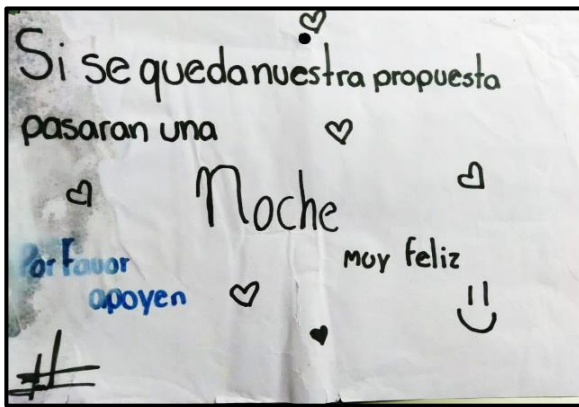 Si se queda nuestra propuesta
pasaran una
Noche
muy feliz
Por Favor
apoyen
#